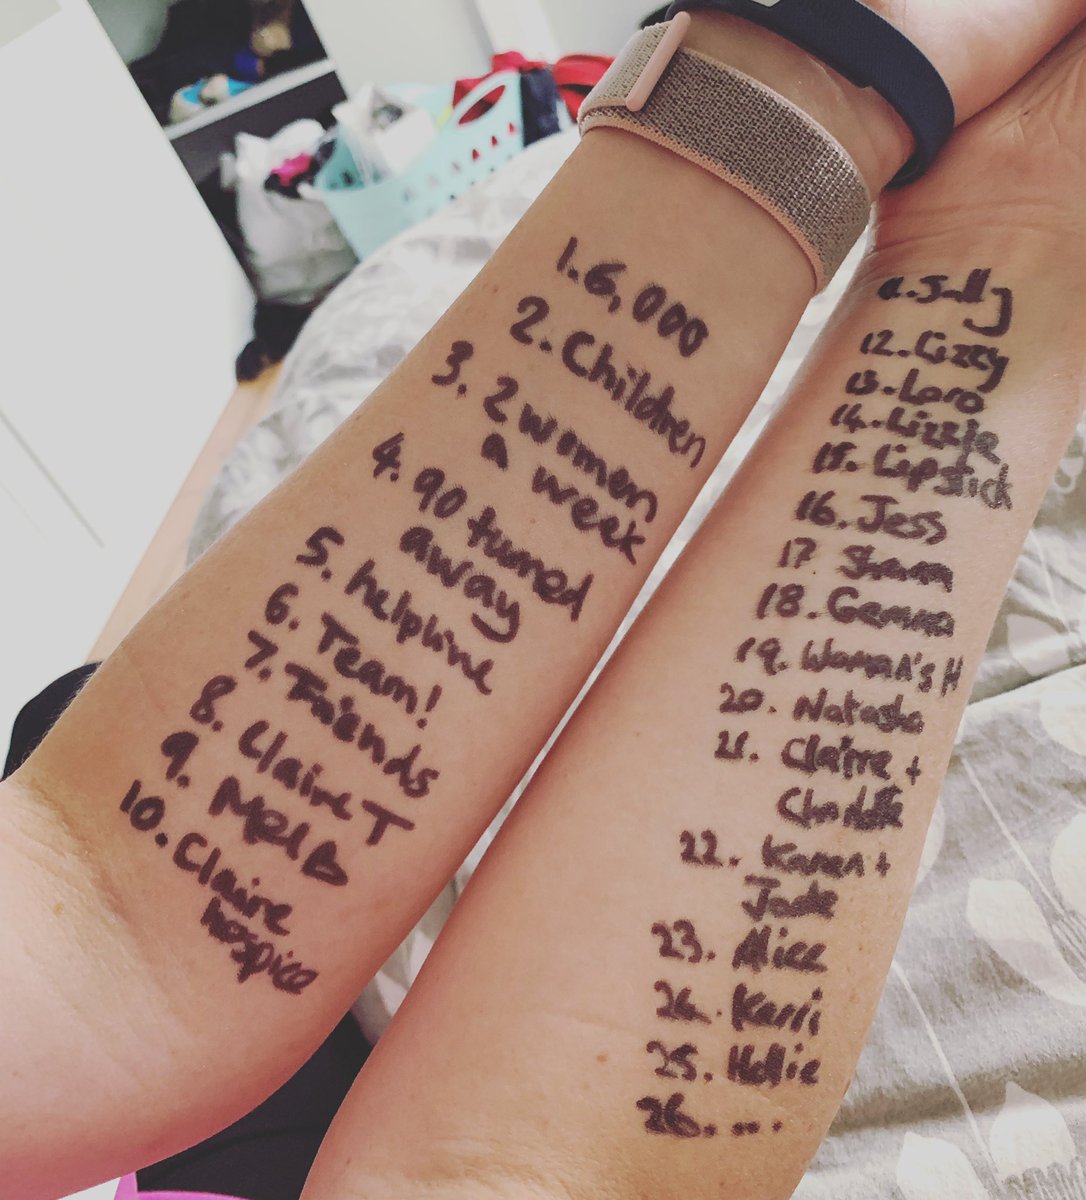 1. 6,000
2. Children
3. 2 women
a week
4. 90 turned
away
5. helpline
6. Team!
7. Friends
8. Claire T
9. Mel B
10. Claire
hospice
11. Sally
12. Lizzy
13. Lara
14. Lizzie
15. Lipstick
16. Jess
17
18. Gemma
19. Woman's H
20. Natasha
21. Claire +
Charlotte
22. Karen +
Jade
23. Alice
24. Kerri
25. Hollie
26. ....